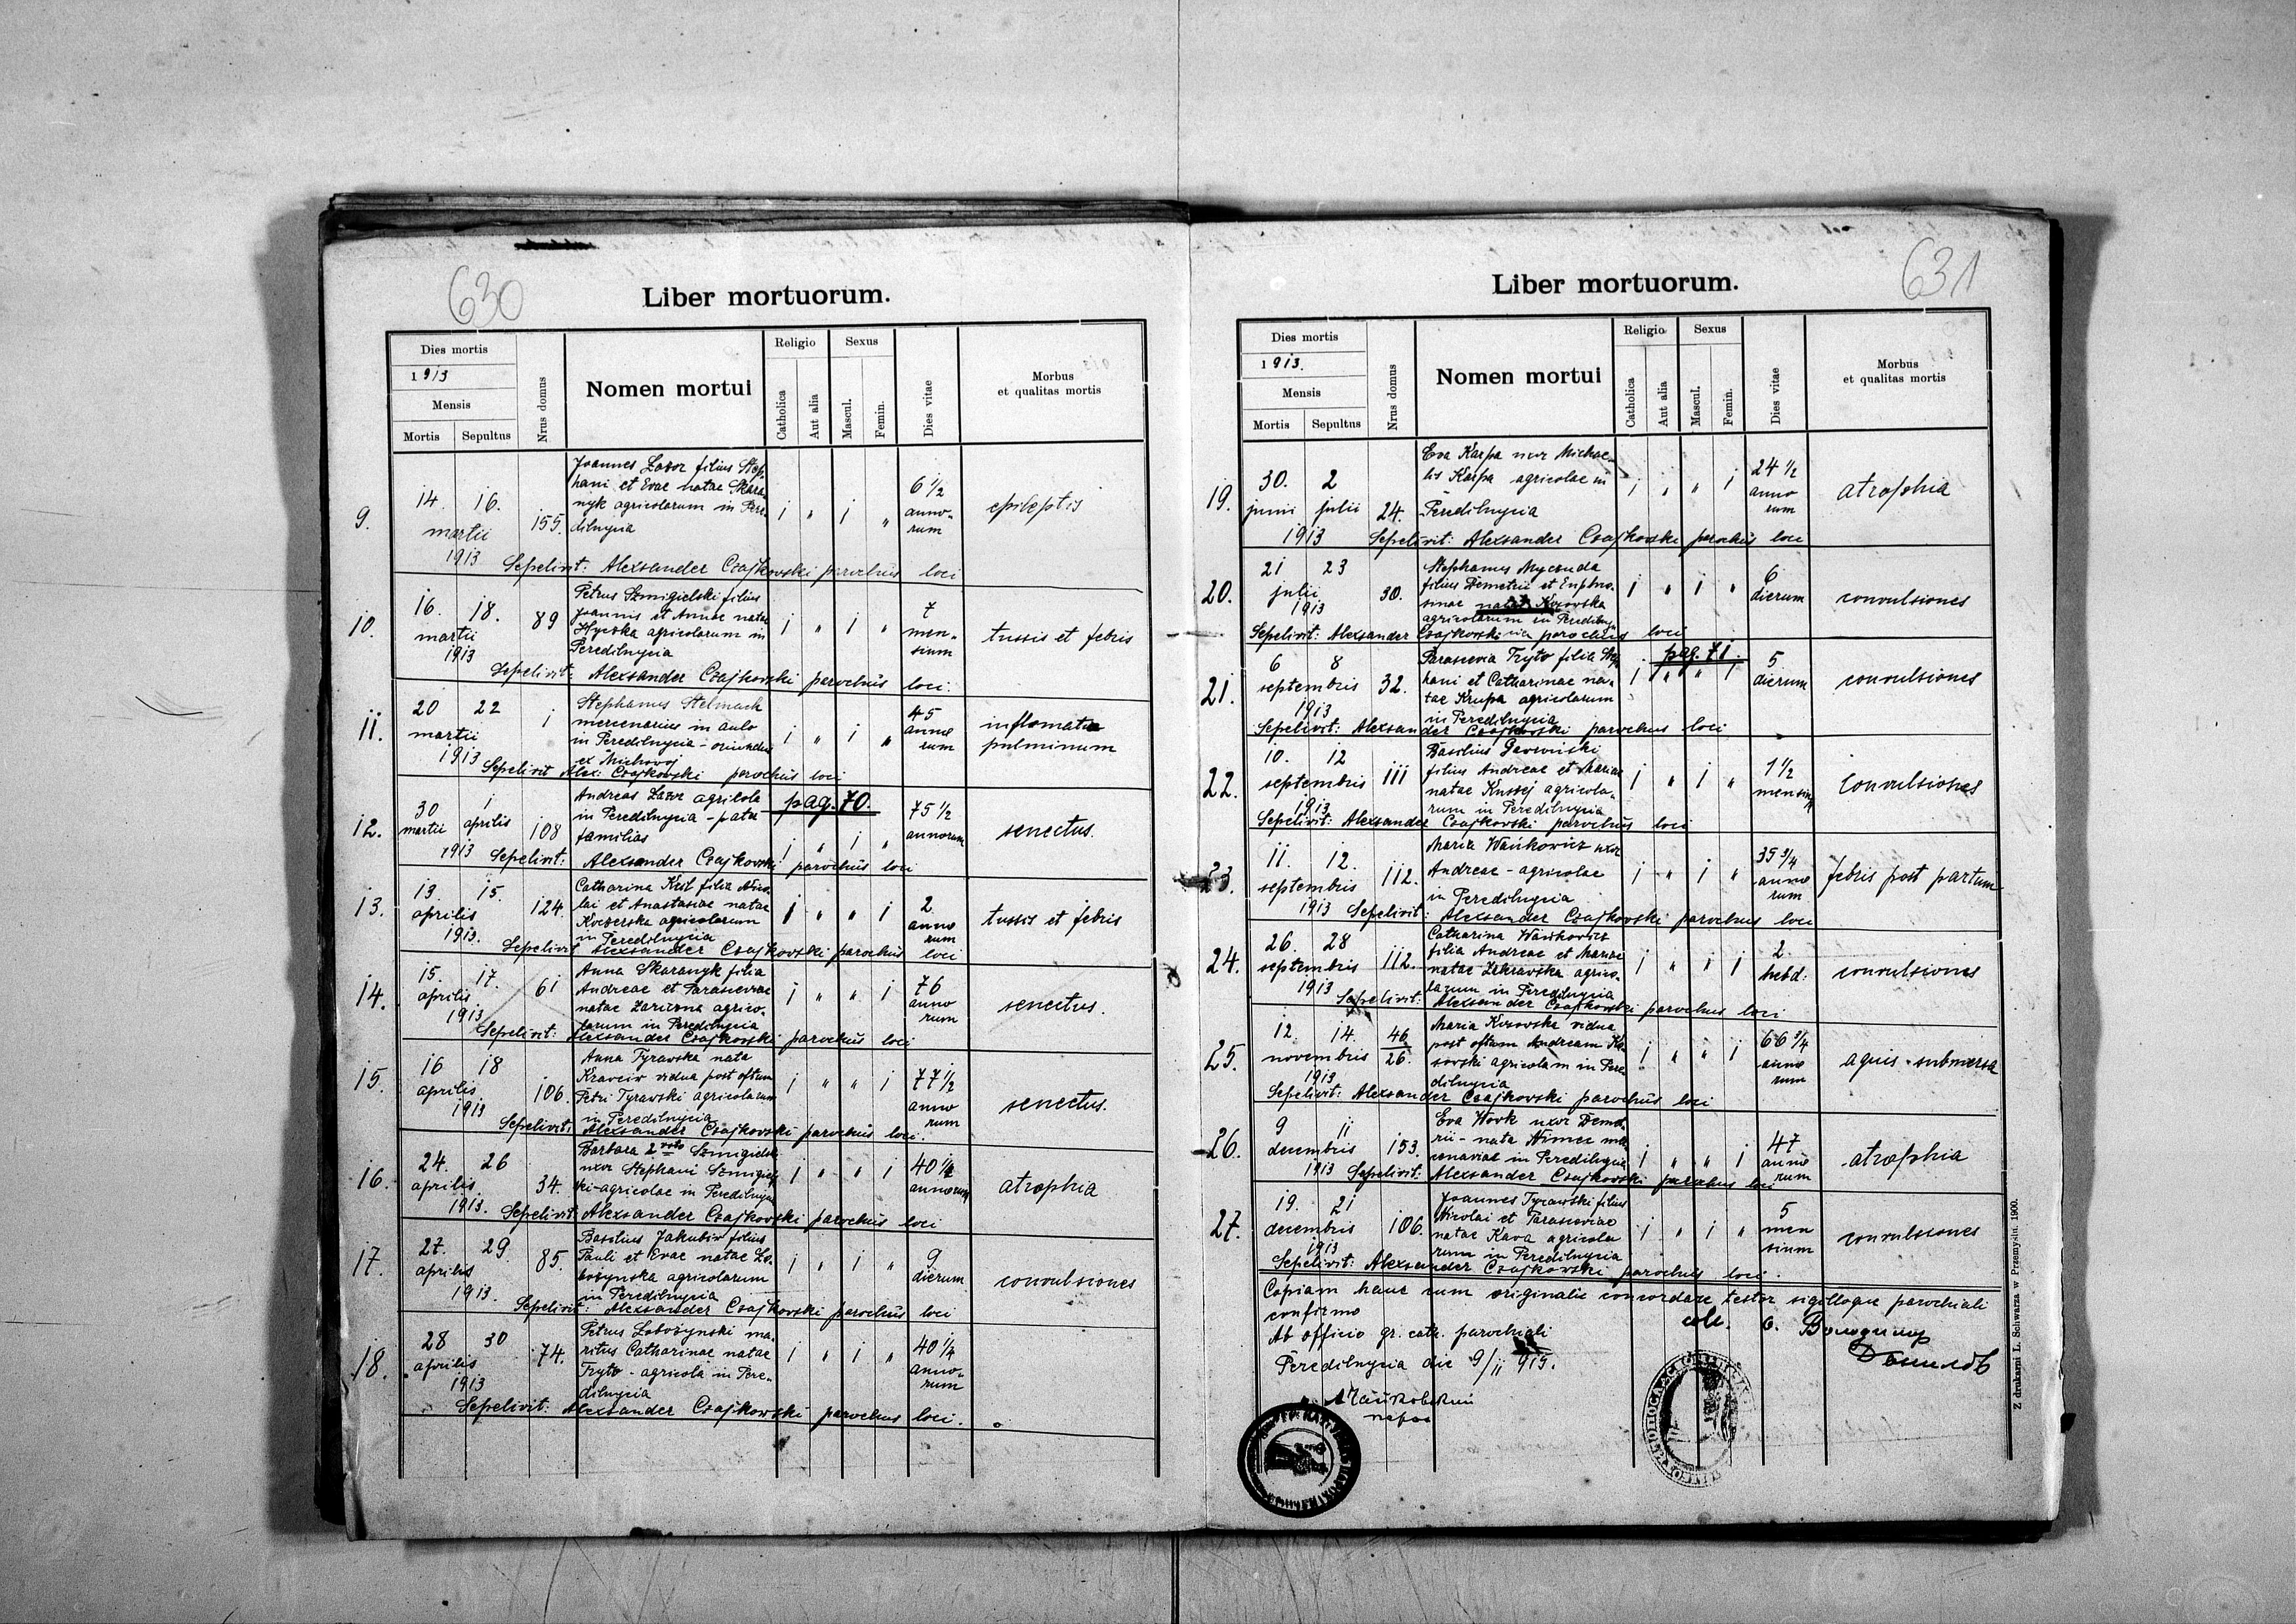 630
Liber mortuorum.
Dies mortis
1913
Mensis
Mortis Sepultus
Nrus domus
Nomen mortui
Religio
Catholica
Aut alia
Sexus
Mascul.
Femin.
Dies vitae
Morbus
et qualitas mortis
9. 14. 16. martii 1913 155.
Joannes Lazor filius Step-
hani et Evae natae Skara-
nyk agricolarum in Pere-
dilnycia
1 " 1 " 6 1/2 anno-
rum
epileptis
Sepelivit: Alexsander Czajkowski parochus loci
10. 16. 18. martii 1913 89
Petrus Szmigielski filius
Joannis et Annae natae
Hycska agricolarum in
Peredilnycia
1 " 1 " 7 men-
sium
tussis et febris
Sepelivit: Alexsander Czajkowski parochus loci.
11. 20 22 martii 1913 1
Stephanus Stelmach
mercenarius in aulo
in Peredilnycia -
ex Michovoj
1 " 1 " 45 anno
rum
inflamatio
pulminum
Sepelivit Alex: Czajkowski parochus loci
12. 30 martii 1 aprilis 1913 108
Andreas Lazor agricola
in Peredilnycia - pater
familias
pag. 70.
1 " 1 " 75 1/2
annorum
senectus.
Sepelivit: Alexsander Czajkowski parochus loci
13. 13. 15. aprilis 1913. 124.
Catharina Kril filia Nico-
lai et Anastasiae natae
Kozerska agricolarum
in Peredilnycia
1 " " 1 2 anno
rum
tussis et febris
Sepelivit Alexsander Czajkowski parochus loci
14. 15. 17. aprilis 1913 61
Anna Skaranyk filia
Andreae et Parasceviae
natae agrico-
larum in Peredilnycia
1 " " 1 76 anno
rum
senectus.
Sepelivit: Alexsander Czajkowski parochus loci
15. 16 18 aprilis 1913 106.
Anna Tyrawska nata
Kravciv vidua post oftum
Petri Tyrawski agricolarum
in Peredilnycia
1 " " 1 77 1/2 anno
rum
senectus.
Sepelivit: Alexsander Czajkowski parochus loci.
16. 24. 26 aprilis 1913. 34.
Barbara 2 voto Szmigielska
uxor Stephani Szmigiel-
ski - agricolae in Peredilnycia
1 " " 1 40 1/2
annorum
atrophia
Sepelivit Alexsander Czajkowski parochus loci
17. 27. 29. aprilis 1913. 85.
Basilius Jakubiv filius
Pauli et Evae natae Lo-
bozynska agricolarum
in Peredilnycia
1 " 1 " 9 dierum
convulsiones
Sepelivit: Alexsander Czajkowski parochus loci
18. 28 30 aprilis 1913 74.
Petrus Lobozynski ma-
ritus Catharinae natae
Fryto - agricola in Pere-
dilnycia
1 " 1 " 40 1/4 anno-
rum
Sepelivit: Alexsander Czajkowski parochus loci.
631
Liber mortuorum.
Dies mortis
1913.
Mensis
Mortis Sepultus
Nrus domus
Nomen mortui
Religio
Catholica
Aut alia
Sexus
Mascul.
Femin.
Dies vitae
Morbus
et qualitas mortis
19. 30. junii 2 julii 1913 24.
Eva Karpa uxor Michae-
lis Karpa agricolae in
Peredilnycia
1 " " 1 24 1/2
anno
rum
atrophia
Sepelivit: Alexsander Czajkowski parochus loci
20. 21 23 julii 1913 30.
Stephanus Myczuda
filius Demetrii et Euphro-
sinae natae Kosowska
agricolarum in Peredilny-
cia
1 " 1 " 6 dierum
convulsiones
Sepelivit: Alexsander Czajkowski parochus loci
21. 6 8 septembris 1913 32.
Parascevia Fryto filia Step-
hani et Catharinae na-
tae Krupa agricolarum
in Peredilnycia
pag. 71.
1 " " 1 5 dierum
convulsiones
Sepelivit: Alexsander Czajkowski parochus loci
22. 10. 12 septembris 1913 111
Basilius
filius Andreae et Mariae
natae agricola-
rum in Peredilnycia
1 " 1 " 1 1/2
mensium
convulsiones
Sepelivit: Alexsander Czajkowski parochus loci
23. 11. 12. septembris 1913 112.
Maria Wańkowicz uxor
Andreae - agricolae
in Peredilnycia
1 " 1 " 35 3/4
anno
rum
febris post partum
Sepelivit: Alexsander Czajkowski parochus loci
24. 26. 28 septembris 1913 112.
Catharina Wańkowicz
filia Andreae et Mariae
natae Zakrawska agrico-
larum in Peredilnycia
1 " 1 1 2. hebd:
convulsiones
Sepelivit: Alexsander Czajkowski parochus loci
25. 12. 14. novembris 1913 46/26.
Maria Kosowska vidua
post oftum Andream Ko-
sowski agricolam in Pere
dilnycia
1 " " 1 66 3/4
anno
rum
aquis submersa
Sepelivit: Alexsander Czajkowski parochus loci
26. 9 11 decembris 1913 153.
Eva Wovk uxor Deme-
rii - nata Nimez mer-
cenariae in Peredilnycia
1 " " 1 47
anno
rum
atrophia
Sepelivit: Alexsander Czajkowski parochus loci
27. 19. 21 decembris 1913 106.
Joannes Tyrawski filius
Nicolai et Parasceviae
natae Kava agricola
rum in Peredilnycia
1 " 1 " 5 men
sium
convulsiones
Sepelivit: Alexsander Czajkowski parochus loci.
Copiam hanc cum originalie concordare testor sigilloque parochiali
confirmo
Ab officio gr. cath. parochiali
Peredilnycia die 9/II 915.
о. Володимир
АЧайковский
парох
Z drukarni L. Schwarza w Przemyślu. 1900.